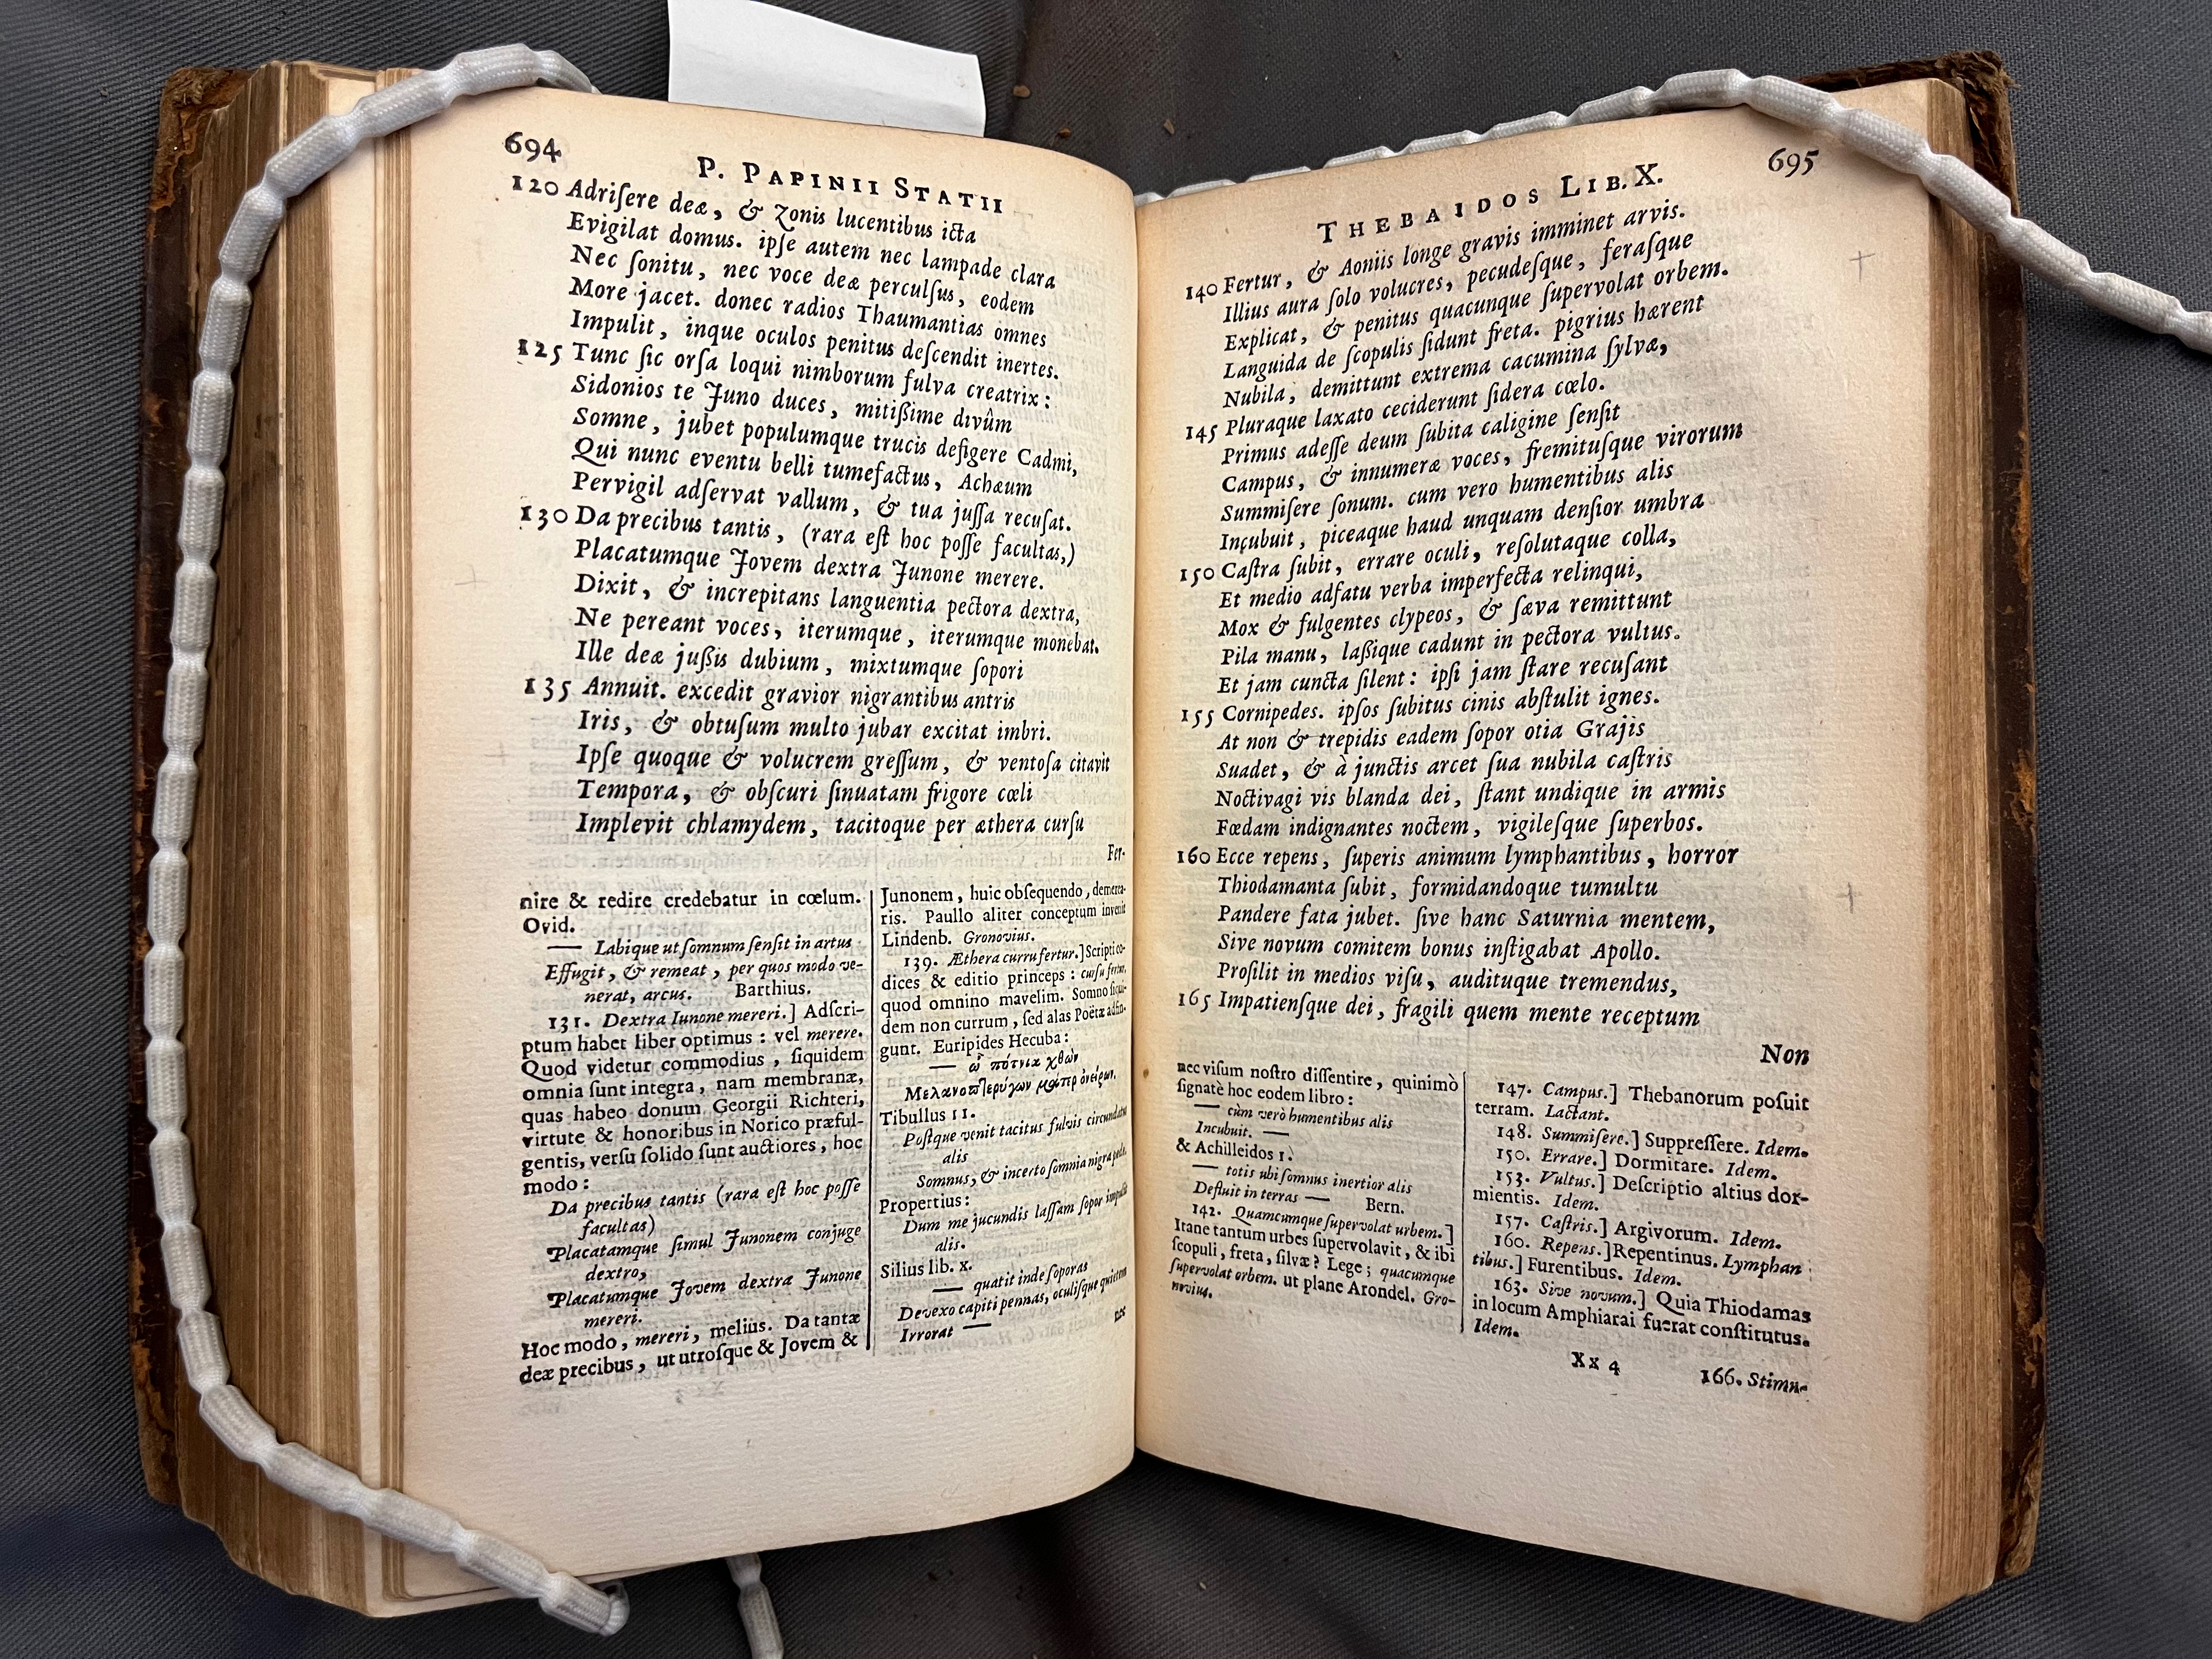 694
P. PAPINII STATII
120 Adriſere deæ, & zonis lucentibus icta
Evigilat domus. ipſe autem nec lampade clara
Nec ſonitu, nec voce deæ perculſus, eodem
More jacet. donec radios Thaumantias omnes
Impulit, inque oculos penitus deſcendit inertes.
125 Tunc ſic orſa loqui nimborum fulva creatrix:
Sidonios te Juno duces, mitißime divûm
Somne, jubet populumque trucis defigere Cadmi,
Qui nunc eventu belli tumefactus, Achæum
Pervigil adſervat vallum, & tua juſſa recuſat.
130 Da precibus tantis, (rara eſt hoc poſſe facultas,)
Placatumque Jovem dextra Junone merere.
Dixit, & increpitans languentia pectora dextra,
Ne pereant voces, iterumque, iterumque monebat.
Ille deæ jußis dubium, mixtumque ſopori
135 Annuit. excedit gravior nigrantibus antris
Iris, & obtuſum multo jubar excitat imbri.
Ipſe quoque & volucrem greſſum, & ventoſa citavit
Tempora, & obſcuri ſinuatam frigore cœli
Implevit chlamydem, tacitoque per æthera curſu
Fer-
nire & redire credebatur in cœlum.
Ovid.
— Labique ut ſomnum ſenſit in artus
Effugit, & remeat, per quos modo ve-
nerat, arcus. Barthius.
131. Dextra Iunone mereri.] Adſcri-
ptum habet liber optimus: vel merere.
Quod videtur commodius, ſiquidem
omnia ſunt integra, nam membranæ,
quas habeo donum Georgii Richteri,
virtute & honoribus in Norico præful-
gentis, verſu ſolido ſunt auctiores, hoc
modo:
Da precibus tantis (rara eſt hoc poſſe
facultas)
Placatamque ſimul Junonem conjuge
dextro,
Placatumque Jovem dextra Junone
mereri.
Hoc modo, mereri, melius. Da tantæ
deæ precibus, ut utroſque & Jovem &
Junonem, huic obſequendo, demerea-
ris. Paullo aliter conceptum invenit
Lindenb. Gronovius.
139. Æthera curru fertur.] Scripti co-
dices & editio princeps: curſu fertur,
quod omnino mavelim. Somno ſiqui-
dem non currum, ſed alas Poëtæ adfin-
gunt. Euripides Hecuba:
— ὦ πότνια χθὼν
Μελανοπτερύγων μᾶτερ ὀνείρων.
Tibullus 11.
Poſtque venit tacitus fulvis circundatus
alis
Somnus, & incerto ſomnia nigra pede.
Propertius:
Dum me jucundis laſſam ſopor impulit
alis.
Silius lib. x.
— quatit inde ſoporas
Devexo capiti pennas, oculiſque quietem
Irrorat —
nec
THEBAIDOS LIB. X. 695
Fertur, & Aoniis longe gravis imminet arvis.
140 Illius aura ſolo volucres, pecudeſque, feraſque
Explicat, & penitus quacunque ſupervolat orbem.
Languida de ſcopulis ſidunt freta. pigrius hærent
Nubila, demittunt extrema cacumina ſylvæ,
145 Pluraque laxato ceciderunt ſidera cœlo.
Primus adeſſe deum ſubita caligine ſenſit
Campus, & innumeræ voces, fremituſque virorum
Summiſere ſonum. cum vero humentibus alis
Incubuit, piceaque haud unquam denſior umbra
150 Caſtra ſubit, errare oculi, reſolutaque colla,
Et medio adfatu verba imperfecta relinqui,
Mox & fulgentes clypeos, & ſæva remittunt
Pila manu, laßique cadunt in pectora vultus.
Et jam cuncta ſilent: ipſi jam ſtare recuſant
155 Cornipedes. ipſos ſubitus cinis abſtulit ignes.
At non & trepidis eadem ſopor otia Grajis
Suadet, & à junctis arcet ſua nubila caſtris
Noctivagi vis blanda dei, ſtant undique in armis
Fœdam indignantes noctem, vigileſque ſuperbos.
160 Ecce repens, ſuperis animum lymphantibus, horror
Thiodamanta ſubit, formidandoque tumultu
Pandere fata jubet. ſive hanc Saturnia mentem,
Sive novum comitem bonus inſtigabat Apollo.
Proſilit in medios viſu, audituque tremendus,
165 Impatienſque dei, fragili quem mente receptum
Non
nec viſum noſtro diſſentire, quinimò
ſignatè hoc eodem libro:
— cùm verò humentibus alis
Incubuit. —
& Achilleidos 1.
— totis ubi ſomnus inertior alis
Defluit in terras — Bern.
142. Quamcumque ſupervolat urbem.]
Itane tantum urbes ſupervolavit, & ibi
ſcopuli, freta, ſilvæ? Lege; quacumque
ſupervolat orbem. ut plane Arondel. Gro-
novius.
147. Campus.] Thebanorum poſuit
terram. Lactant.
148. Summiſere.] Suppreſſere. Idem.
150. Errare.] Dormitare. Idem.
153. Vultus.] Deſcriptio altius dor-
mientis. Idem.
157. Caſtris.] Argivorum. Idem.
160. Repens.] Repentinus. Lymphan
tibus.] Furentibus. Idem.
163. Sive novum.] Quia Thiodamas
in locum Amphiarai fuerat conſtitutus.
Idem.
Xx 4
166. Stimu-